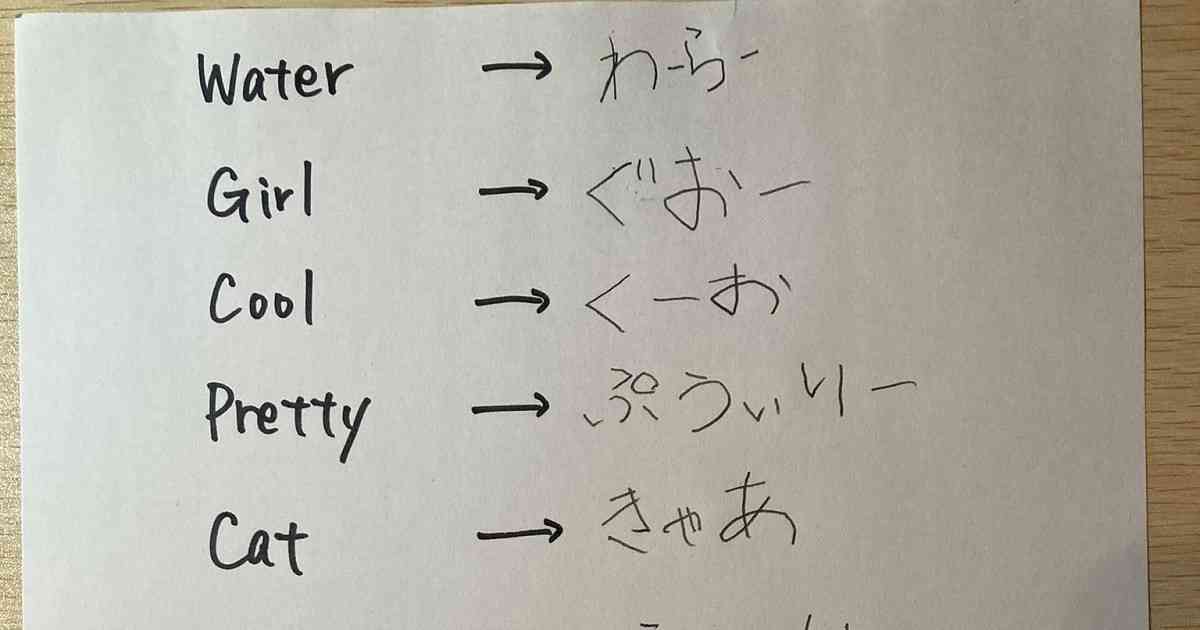 Water → わーらー
Girl → ぐおー
Cool → くーお
Pretty → ぷうぃりー
Cat → きゃあ